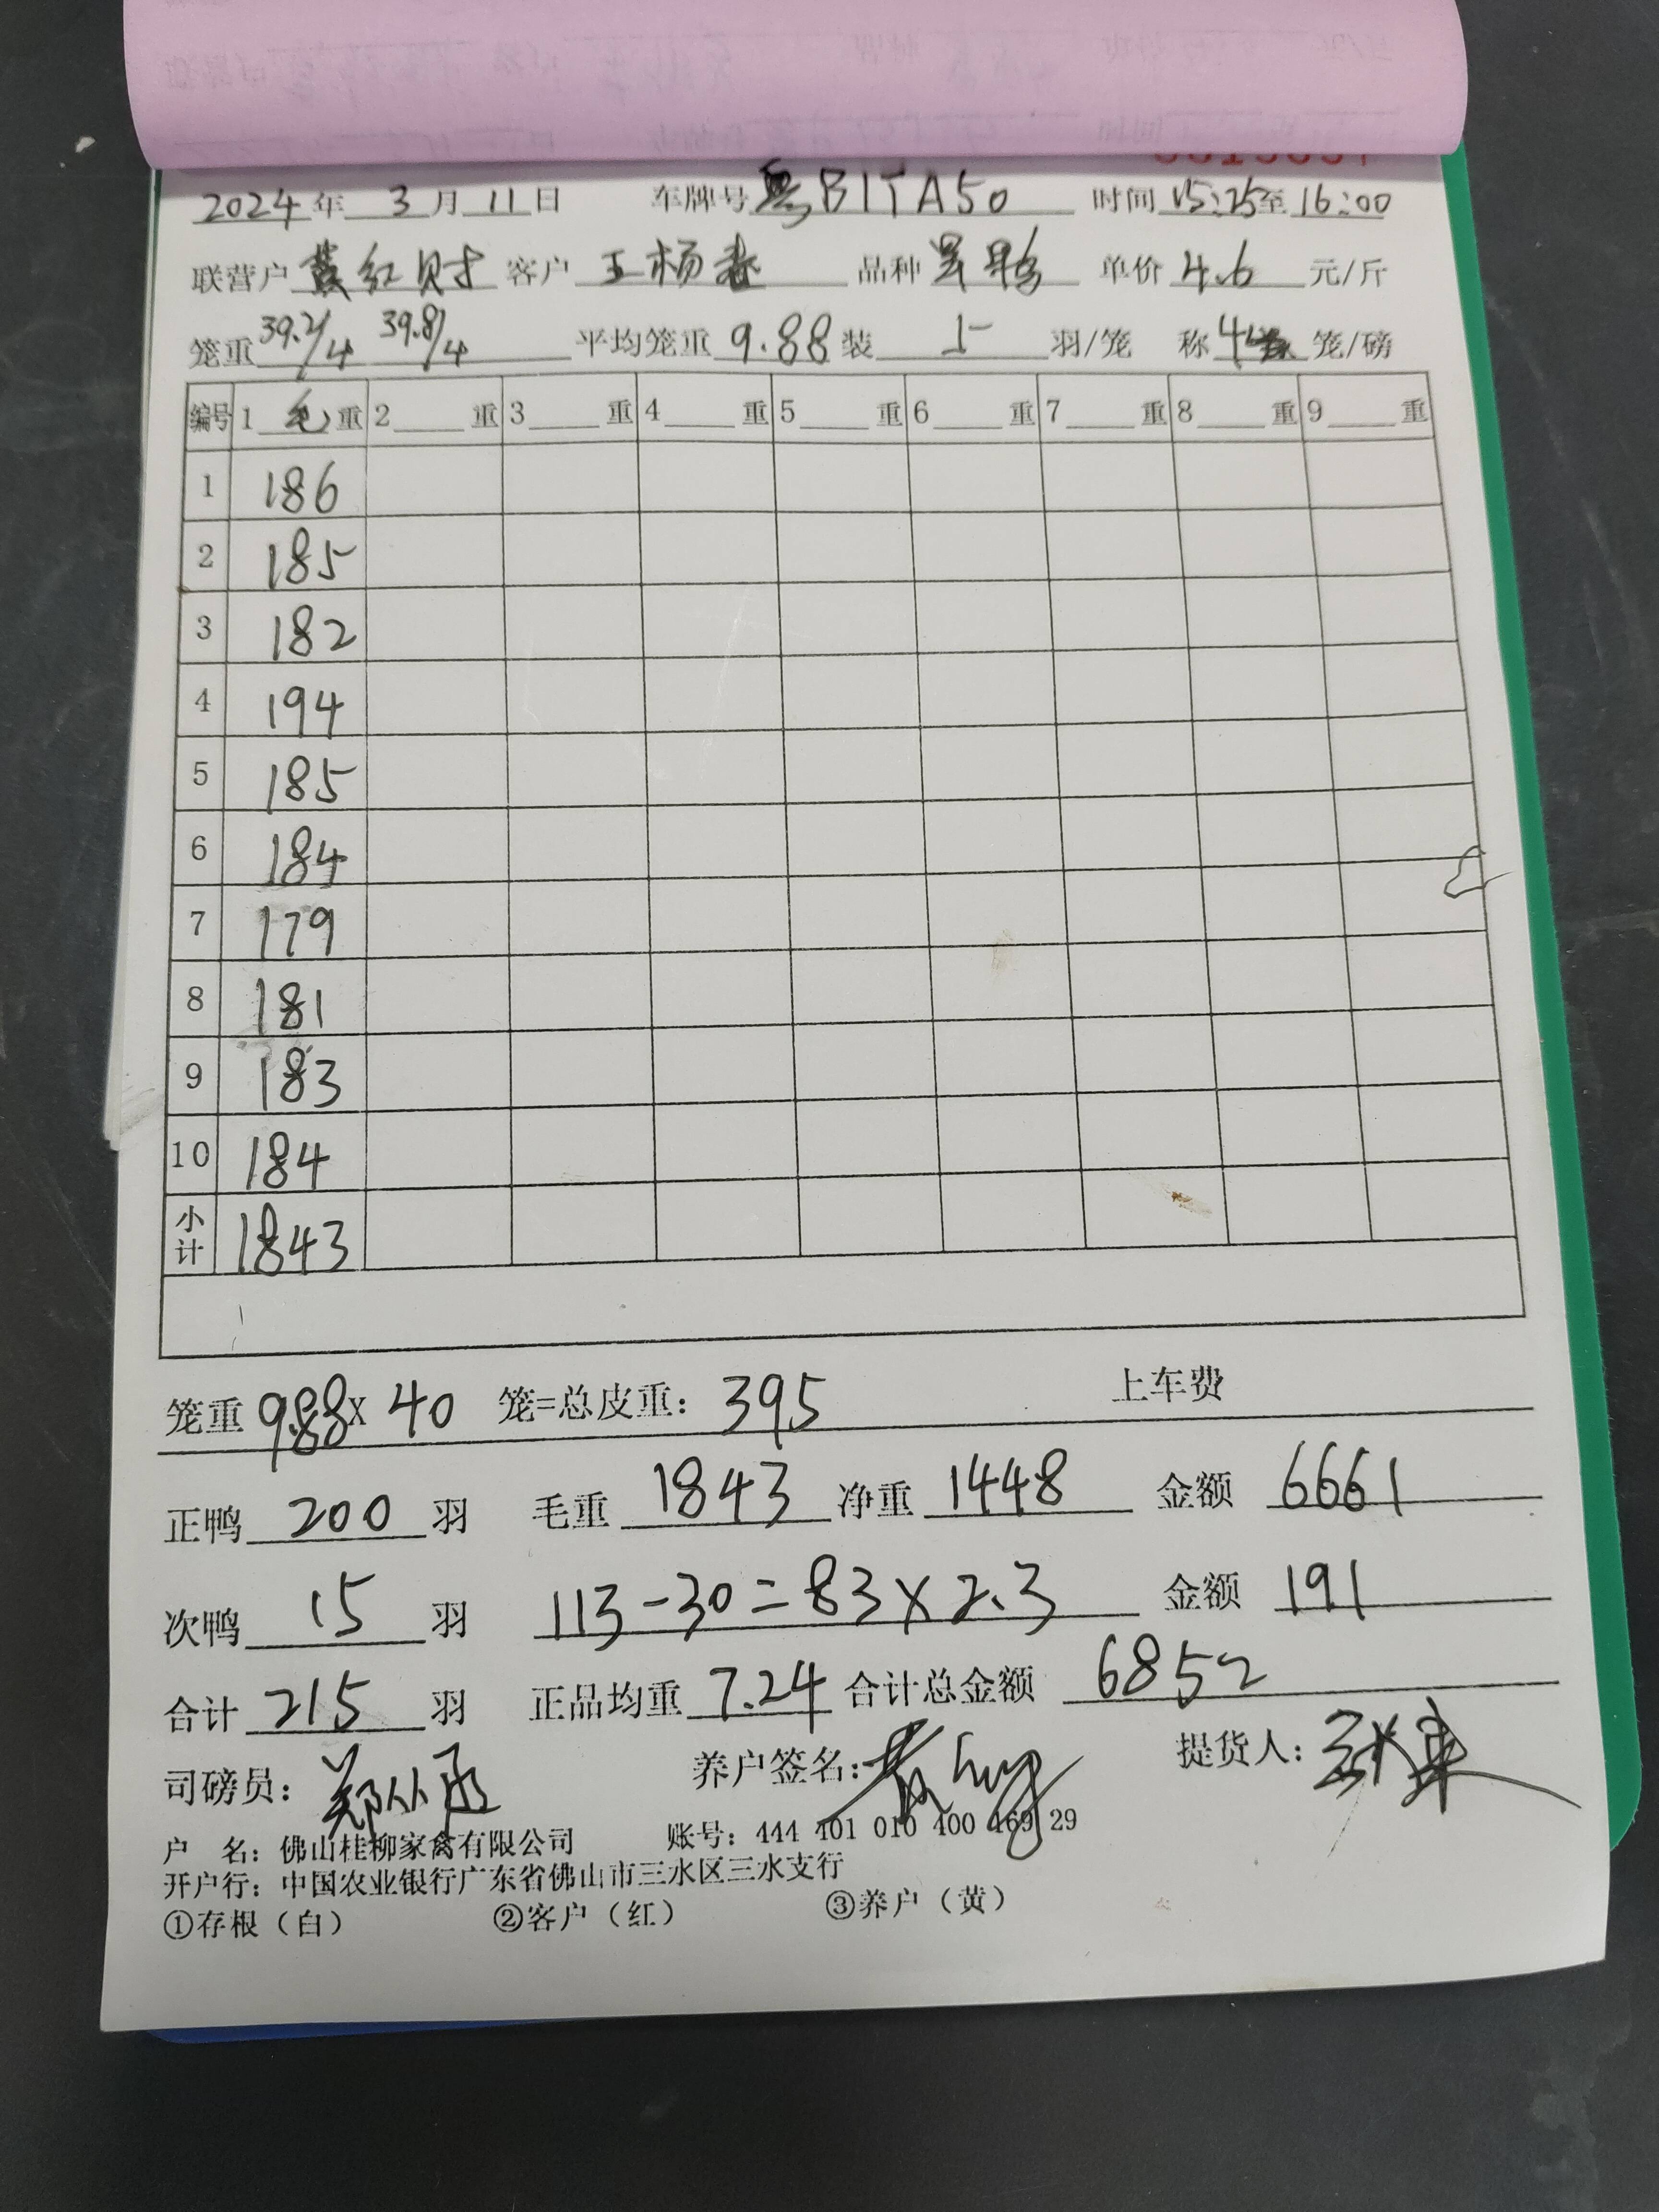 2024年 3月 11日 车牌号 粤B1TA50 时间 15:25至16:00
联营户 黄红财 客户 王杨春 品种 单价 4.6 元/斤
笼重 39.2/4 39.8/4 平均笼重 9.88 装 5 羽/笼 称 4 笼/磅
编号 1 毛重 2 重 3 重 4 重 5 重 6 重 7 重 8 重 9 重
1 186
2 185
3 182
4 194
5 185
6 184
7 179
8 181
9 183
10 184
小计 1843
笼重 9.88 x 40 笼=总皮重: 395 上车费
正鸭 200 羽 毛重 1843 净重 1448 金额 6661
次鸭 15 羽 113-30=83×2.3 金额 191
合计 215 羽 正品均重 7.24 合计总金额 6852
司磅员: 养户签名: 提货人:
户 名: 佛山桂柳家禽有限公司 账号: 444 401 010 400 169 29
开户行: 中国农业银行广东省佛山市三水区三水支行
①存根（白） ②客户（红） ③养户（黄）